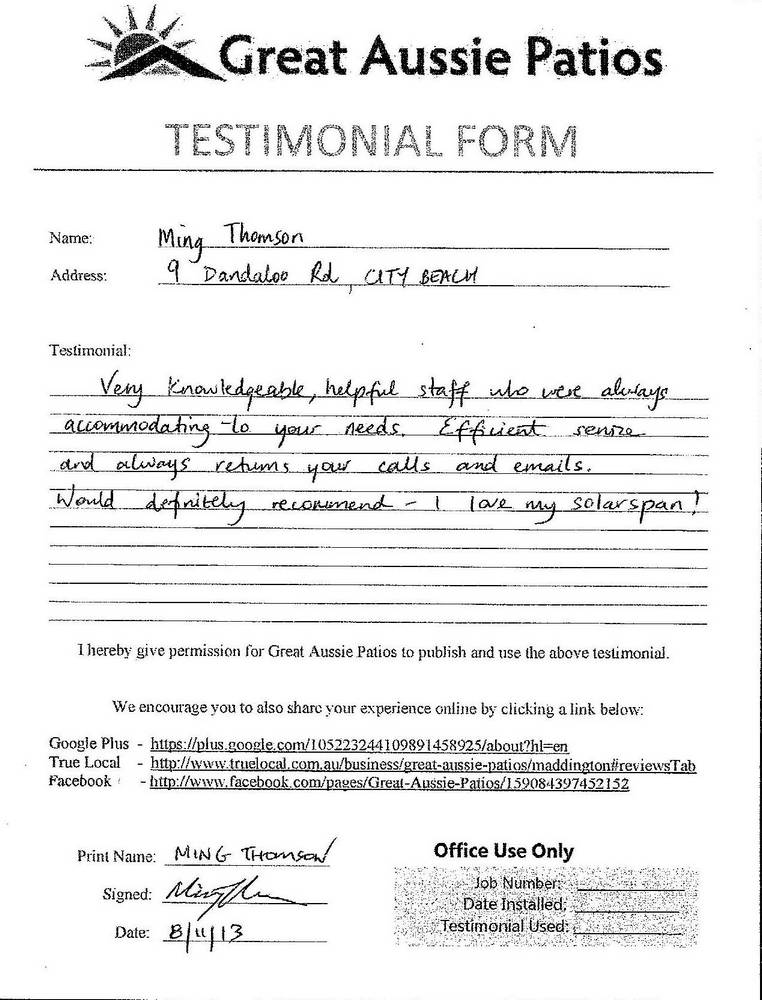 Great Aussie Patios
TESTIMONIAL FORM
Name: Ming Thomson
Address: 9 Dandaloo Rd, CITY BEACH
Testimonial:
Very knowledgeable, helpful staff who were always
accommodating to your needs. Efficient service
and always returns your calls and emails.
Would definitely recommend - I love my solarspan!
I hereby give permission for Great Aussie Patios to publish and use the above testimonial.
We encourage you to also share your experience online by clicking a link below:
Google Plus - https://plus.google.com/105223244109891458925/about?hl=en
True Local - http://www.truelocal.com.au/business/great-aussie-patios/maddington#reviewsTab
Facebook - http://www.facebook.com/pages/Great-Aussie-Patios/159084397452152
Print Name: MING THOMSON
Office Use Only
Job Number:
Signed:
Date Installed:
Testimonial Used:
Date: 8/11/13